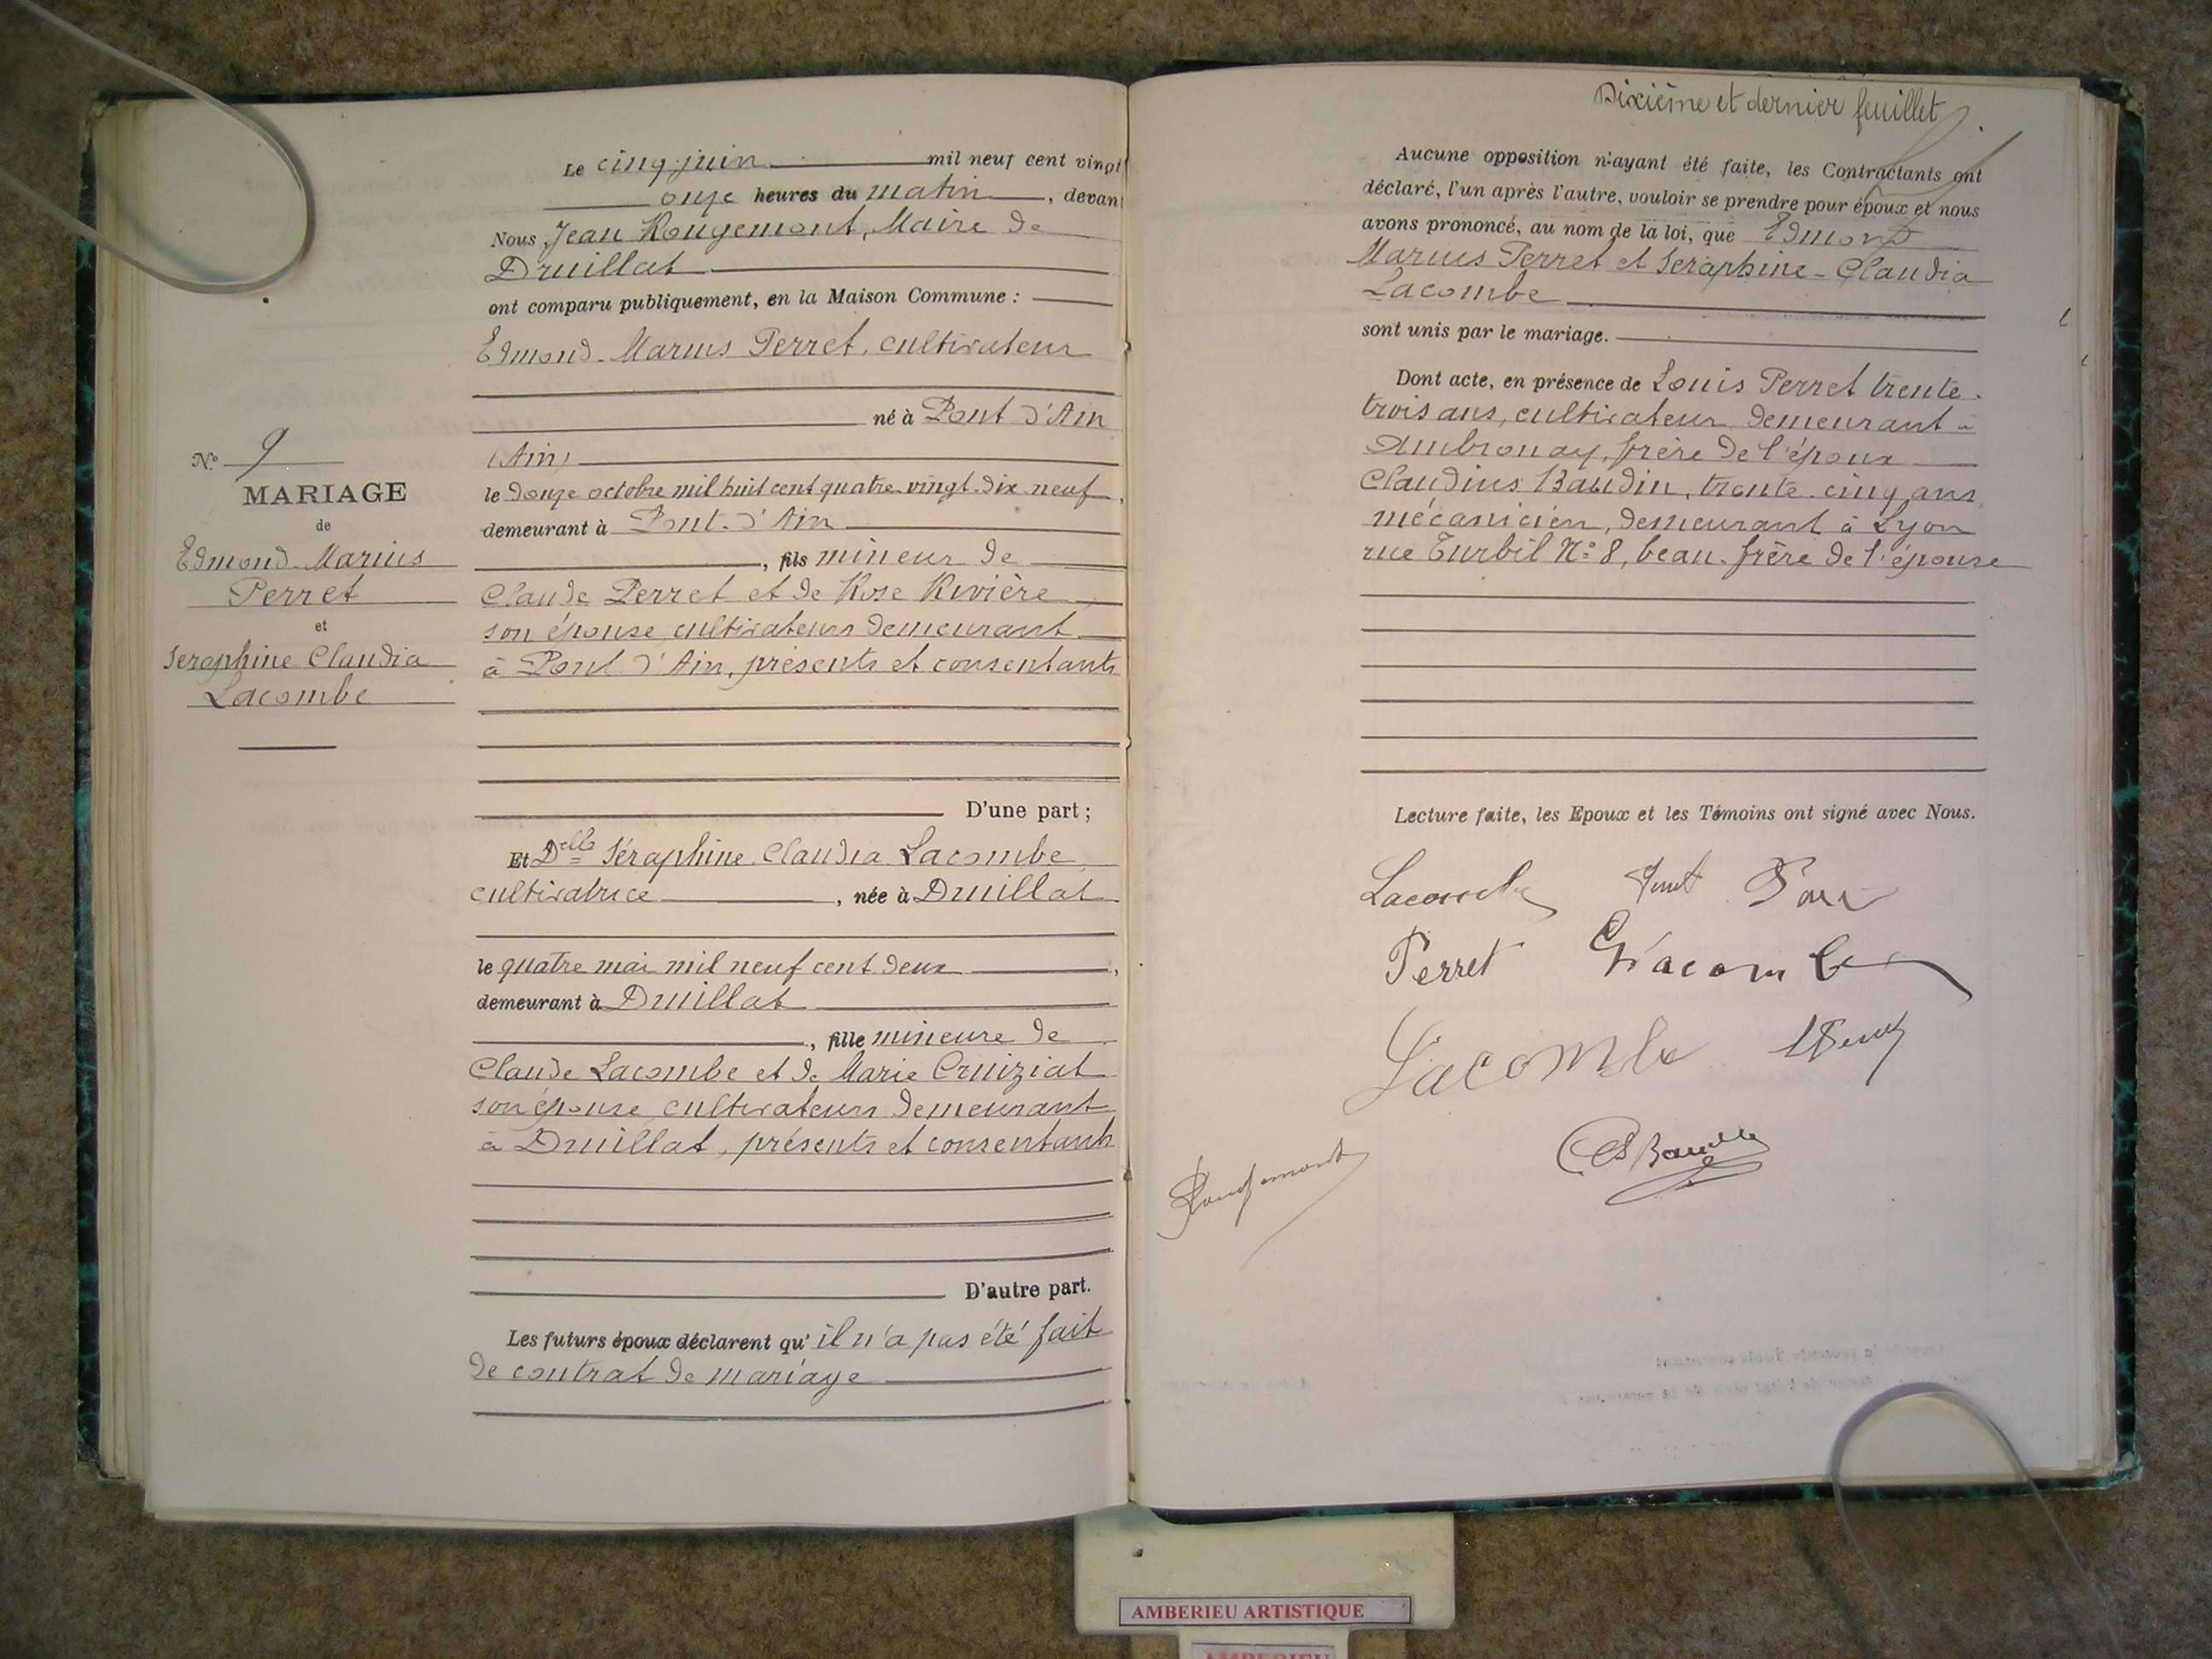 Le cinq juin mil neuf cent vingt
onze heures du matin, devan
Nous, Jean Rougemont, Maire de
Druillat
ont comparu publiquement, en la Maison Commune :
Edmond-Marius Perret, cultivateur
né à Pont d'Ain
(Ain)
le douze octobre mil huit cent quatre-vingt-dix neuf,
demeurant à Pont-d'Ain
, fils mineur de
Claude Perret et de Rose Rivière
son épouse cultivateurs demeurant
à Pont d'Ain, présents et consentants
D'une part ;
Et Delle Séraphine Claudia Lacombe
cultivatrice, née à Druillat
le quatre mai mil neuf cent deux,
demeurant à Druillat
, fille mineure de
Claude Lacombe et de Marie Cruiziat
son épouse cultivateurs demeurant
à Druillat, présents et consentants
D'autre part.
Les futurs époux déclarent qu'il n'a pas été fait
de contrat de mariage
No 9
MARIAGE
de
Edmond-Marius
Perret
et
Seraphine Claudia
Lacombe
Dixième et dernier feuillet
Aucune opposition n'ayant été faite, les Contractants ont
déclaré, l'un après l'autre, vouloir se prendre pour époux et nous
avons prononcé, au nom de la loi, que Edmond
Marius Perret et Seraphine-Claudia
Lacombe
sont unis par le mariage.
Dont acte, en présence de Louis Perret trente-
trois ans, cultivateur demeurant à
Ambronay, frère de l'époux
Claudius Baudin, trente-cinq ans,
mécanicien, demeurant à Lyon
rue Turbil No 8, beau-frère de l'épouse
Lecture faite, les Epoux et les Témoins ont signé avec Nous.
Lacombe
Perret Lacombe
Lacombe
Rougemont
AMBERIEU ARTISTIQUE
AMBERIEU